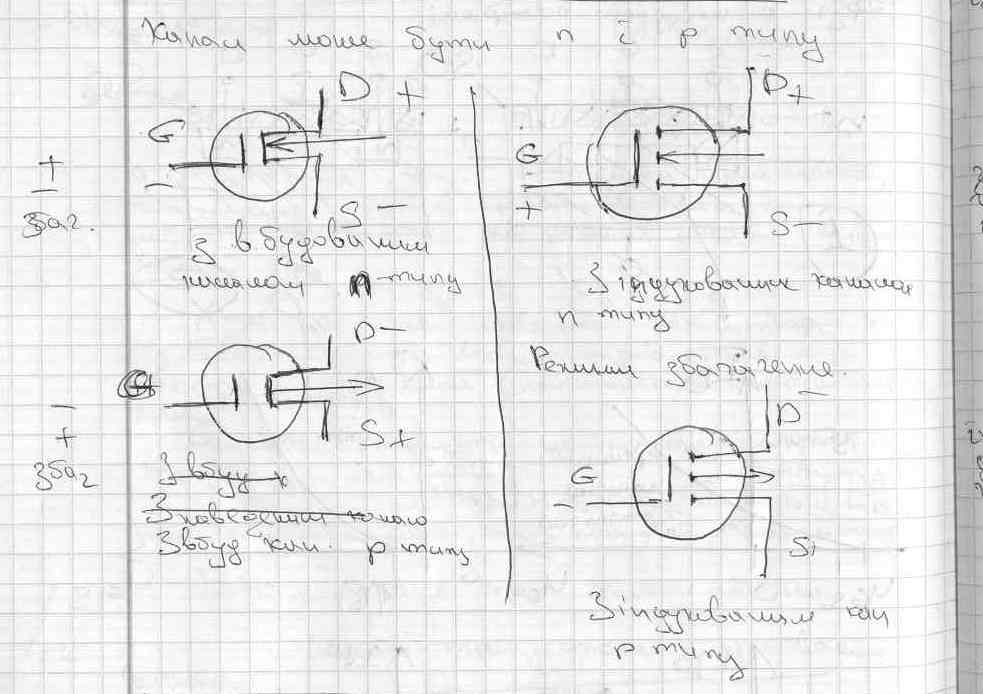 Канал може бути n і р типу
D +
G
−
+
−
збаг.
S −
З вбудованим
каналом n-типу
D+
G
+
S−
З індукованим каналом
n типу
D−
G
−
+
збаг
S+
З вбуд к
З наведеним канало
З вбуд кан. р типу
Режим збагачення.
D−
G
−
S
З індукованим кан
р типу